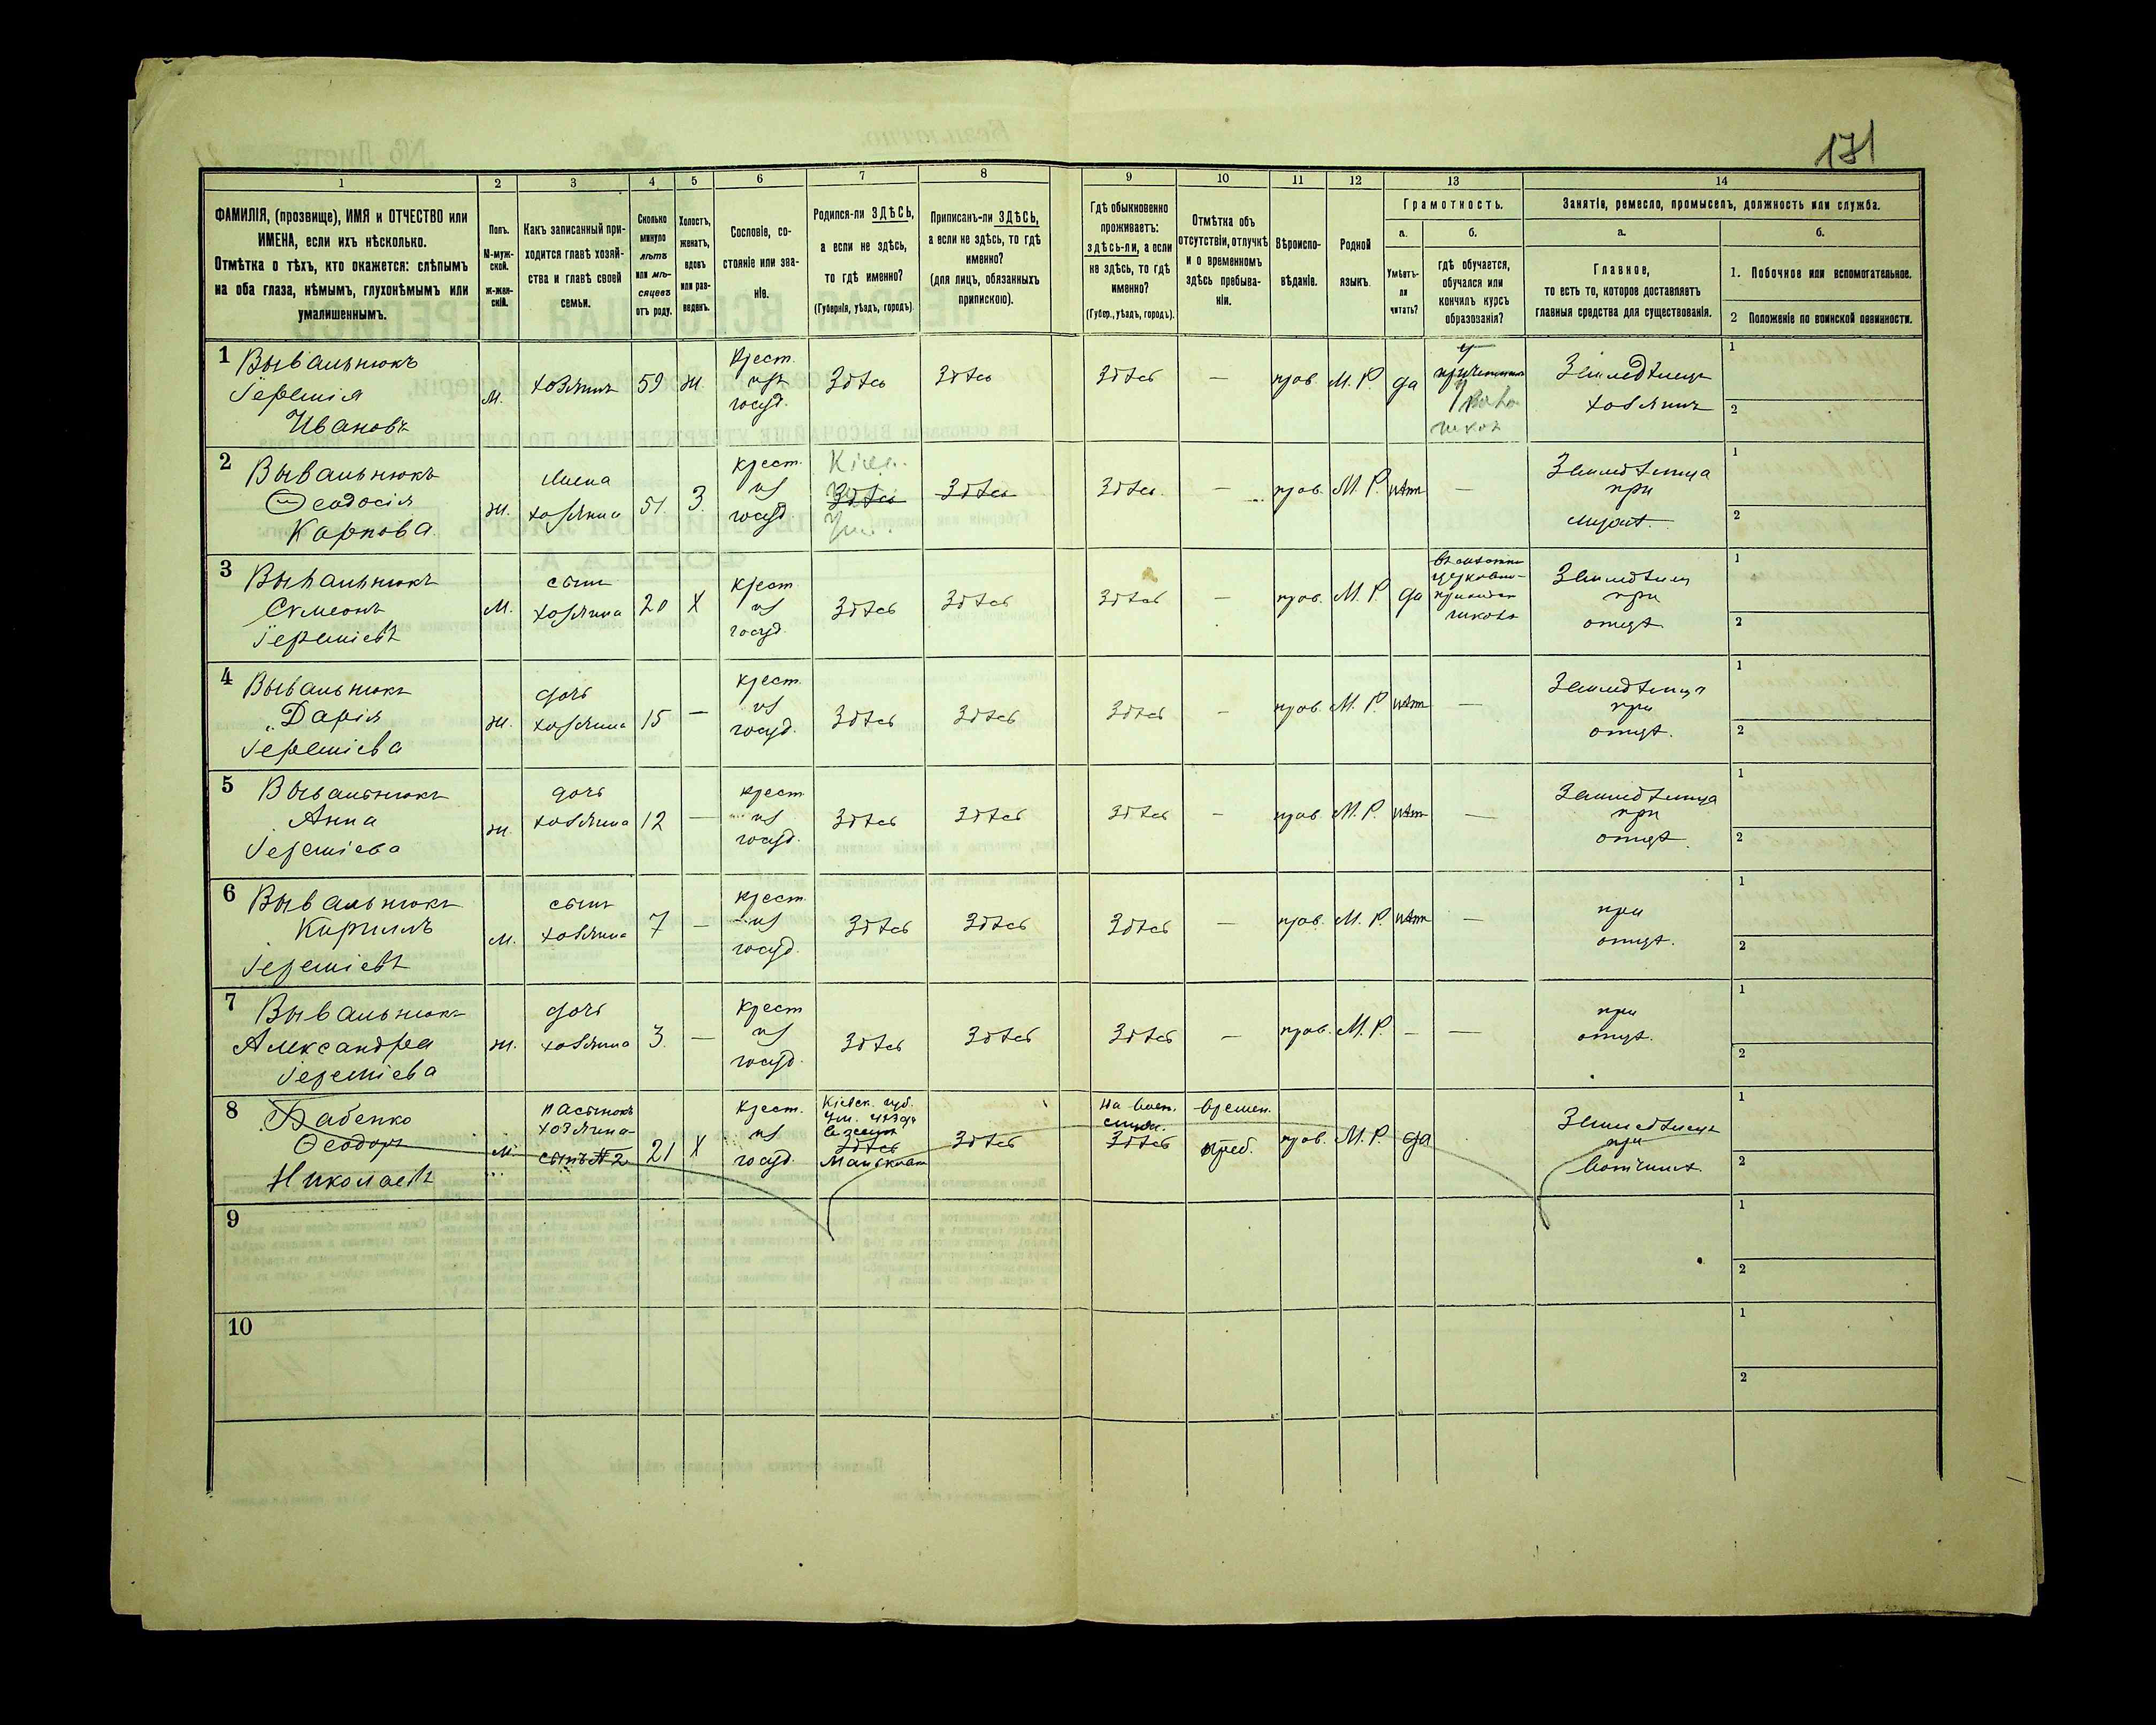 171
1 2 3 4 5 6 7 8 9 10 11 12 13 14
ФАМИЛІЯ, (прозвище), ИМЯ и ОТЧЕСТВО или
ИМЕНА, если ихъ нѣсколько.
Отмѣтка о тѣхъ, кто окажется: слѣпымъ
на оба глаза, нѣмымъ, глухонѣмымъ или
умалишеннымъ.
Полъ.
М-муж-
ской.
ж-жен-
скій.
Какъ записанный при-
ходится главѣ хозяй-
ства и главѣ своей
семьи.
Сколько
минуло
лѣтъ
или мѣ-
сяцевъ
отъ роду.
Холостъ,
женатъ,
вдовъ
или раз-
веденъ.
Сословіе, со-
стояніе или зва-
ніе.
Родился-ли ЗДѢСЬ,
а если не здѣсь,
то гдѣ именно?
(Губернія, уѣздъ, городъ)
Приписанъ-ли ЗДѢСЬ,
а если не здѣсь, то гдѣ
именно?
(для лицъ, обязанныхъ
припискою).
Гдѣ обыкновенно
проживаетъ:
здѣсь-ли, а если
не здѣсь, то гдѣ
именно?
(Губер., уѣздъ, городъ).
Отмѣтка объ
отсутствіи, отлучкѣ
и о временномъ
здѣсь пребыва-
ніи.
Вѣроиспо-
вѣданіе.
Родной
языкъ.
Грамотность.
а.
Умѣетъ-
ли
читать?
б.
гдѣ обучается,
обучался или
кончилъ курсъ
образованія?
Занятіе, ремесло, промыселъ, должность или служба.
а.
Главное,
то есть то, которое доставляетъ
главныя средства для существованія.
б.
1. Побочное или вспомогательное.
2 Положеніе по воинской повинности.
1 Вывальнюкъ
Іеремія
Ивановъ
м.
хозяинъ
59
ж.
крест.
изъ
госуд.
здѣсь
здѣсь
здѣсь
—
прав.
М. Р.
да
у
школ
Земледѣлецъ
хозяинъ
1
2
2 Вывальнюкъ
Ѳеодосія
Карпова
ж.
жена
хозяина
51
З.
крест.
из
госуд.
Кіев.
здѣсь
здѣсь
здѣсь
—
прав.
М. Р.
нѣт
—
Земледѣлица
при
мужѣ.
1
2
3 Вывальнюкъ
Симеонъ
Іереміевъ
м.
сынъ
хозяина
20
Х
крест
из
госуд.
здѣсь
здѣсь
здѣсь
—
прав.
М. Р.
да
церковно-
приходск
школѣ
Земледѣлец
при
отцѣ.
1
2
4 Вывальнюкъ
Дарія
Іереміева
ж.
дочь
хозяина
15
—
крест.
из
госуд.
здѣсь
здѣсь
здѣсь
—
прав.
М. Р.
нѣт
—
Земледѣлица
при
отцѣ.
1
2
5 Вывальнюкъ
Анна
Іереміева
ж.
дочь
хозяина
12
—
крест
из
госуд.
здѣсь
здѣсь
здѣсь
—
прав.
М. Р.
нѣт
—
Земледѣлица
при
отцѣ.
1
2
6 Вывальнюкъ
Кириллъ
Іереміевъ
м.
сынъ
хозяина
7
—
крест
из
госуд.
здѣсь
здѣсь
здѣсь
—
прав.
М. Р.
нѣт
—
при
отцѣ.
1
2
7 Вывальнюкъ
Александра
Іереміева
ж.
дочь
хозяина
3.
—
крест
из
госуд.
здѣсь
здѣсь
здѣсь
—
прав.
М. Р.
—
—
при
отцѣ.
1
2
8 Бабенко
Ѳеодоръ
Николаевъ
м.
пасынокъ
хозяина
сынъ №2
21
Х
крест.
из
госуд.
Кіевск. губ.
Ум. уѣзда
здѣсь
здѣсь
На воен.
служ.
здѣсь
времен.
преб.
прав.
М. Р.
да
Земледѣлецъ
при
вотчимѣ.
1
2
9
1
2
10
1
2